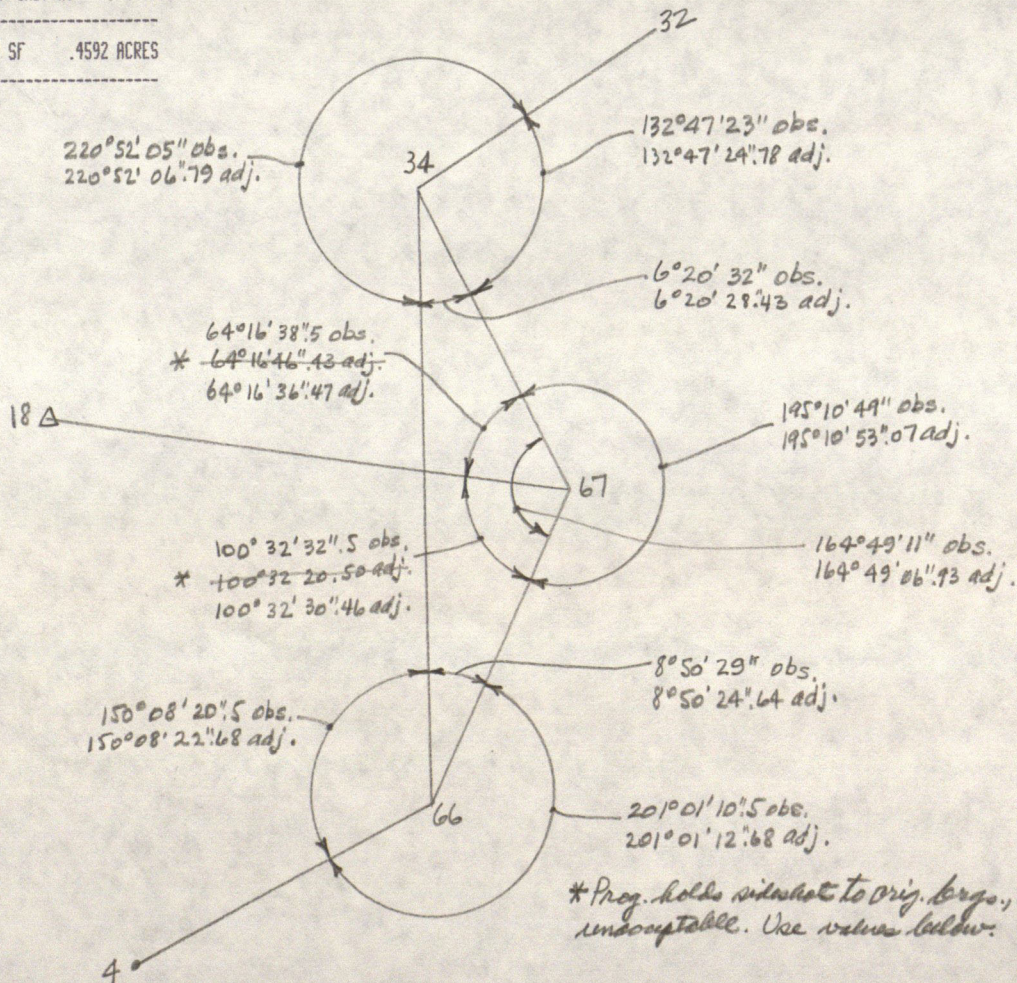 SF .4592 ACRES
32
220°52'05" obs.
220°52'06".79 adj.
34
132°47'23" obs.
132°47'24".78 adj.
6°20'32" obs.
6°20'28".43 adj.
64°16'38".5 obs.
* 64°16'46".43 adj.
64°16'36".47 adj.
18
195°10'49" obs.
195°10'53".07 adj.
67
100°32'32".5 obs.
* 100°32 20.50 adj.
100°32'30".46 adj.
164°49'11" obs.
164°49'06".93 adj.
8°50'29" obs.
8°50'24".64 adj.
150°08'20".5 obs.
150°08'22".68 adj.
66
201°01'10".5 obs.
201°01'12".68 adj.
* Prog. holds sideshot to orig. brgs.,
unacceptable. Use values below.
4